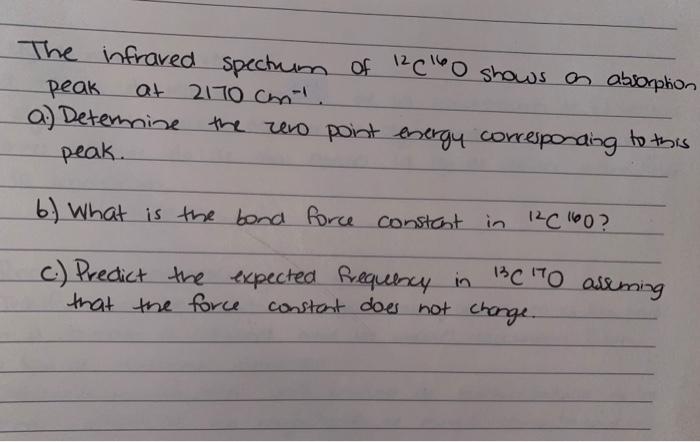 The infrared spectrum of ¹²C¹⁶O shows an absorption
peak at 2170 cm⁻¹.
a.) Determine the zero point energy corresponding to this
peak.
b.) What is the bond force constant in ¹²C¹⁶O?
c.) Predict the expected frequency in ¹³C¹⁷O assuming
that the force constant does not change.